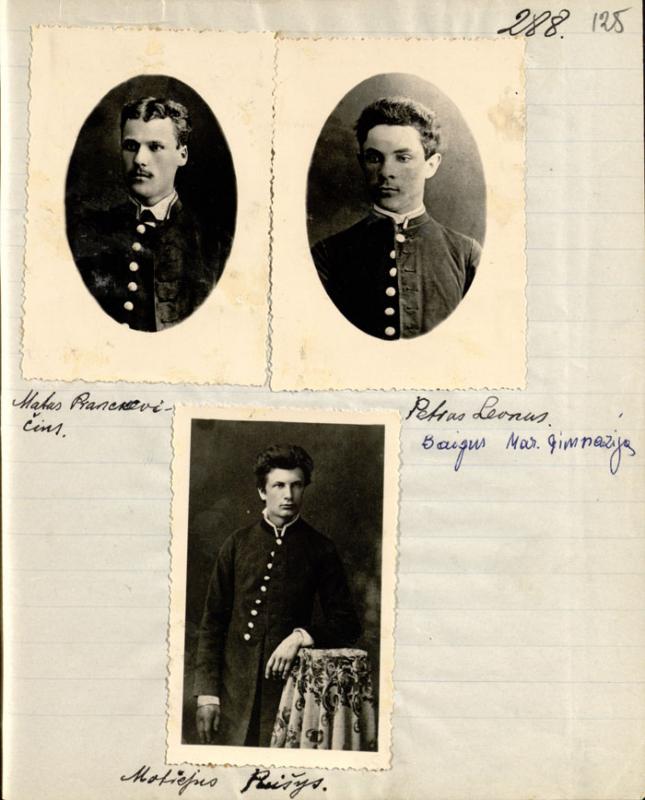 288. 125
Matas Pranckevi-
čius.
Petras Leonas.
Baigus Mar. gimnaziją
Motiejus Rušys.